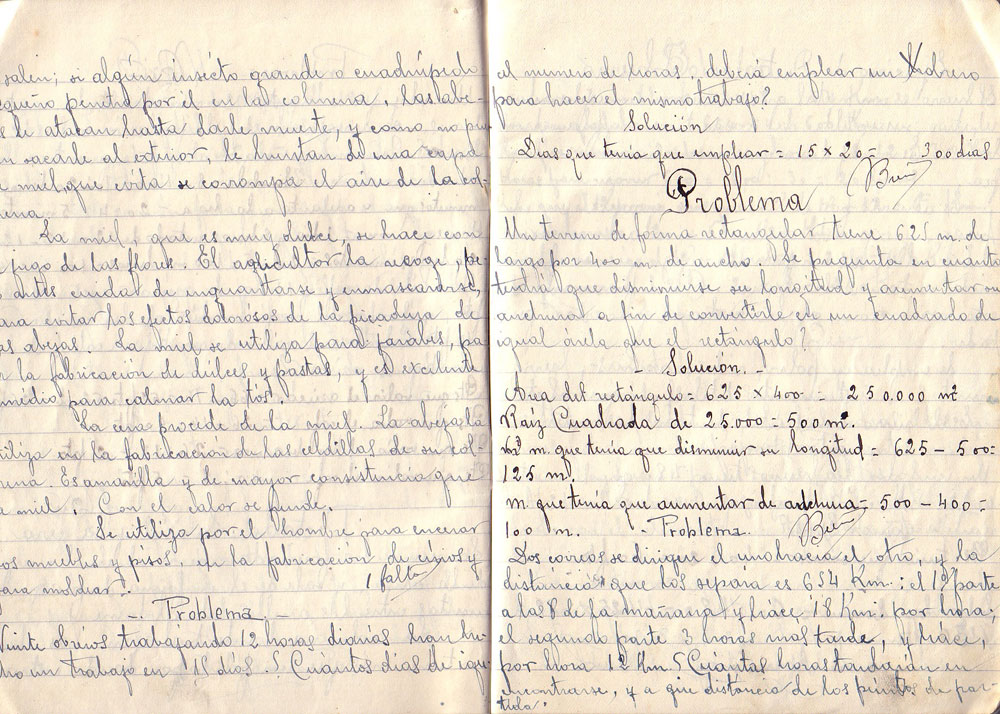 salen; si algún insecto grande o cuadrúpedo
equeño penetra por él en la colmena, las abe-
s le atacan hasta darle muerte, y como no pue
n sacarle al exterior, le huntan de una capa
e miel, que evita se corrompa el aire de la col-
ena.
La miel, que es muy dulce, se hace con
l jugo de las flores. El agricultor la recoge, pe-
o antes cuida de enguantarse y enmascararse
ara evitar los efectos dolorosos de la picaduja de
as abejas. La miel se utiliza para jarabes, pa
a la fabricación de dulces y pastas, y es excelente
medio para calmar la tós.
La cera procede de la miel. La abeja la
tiliza en la fabricación de las celdillas de su col-
ena. Es amarilla y de mayor consistencia que
a miel. Con el calor se funde.
Se utiliza por el hombre para encerar
os muebles y pisos, en la fabricación de cirios y
ara moldear. 1 falta
-. Problema .-
Veinte obreros trabajando 12 horas diarias han he-
ho un trabajo en 15 días. ¿Cuántos días de igu
el numero de horas, deberá emplear un obrero
para hacer el mismo trabajo?
Solución
Dias que tenía que emplear = 15 x 20 = 300 dias
Bien
Problema
Un terreno de forma rectangular tiene 625 m. de
largo por 400 m. de ancho. Se pregunta en cuánto
tendrá que disminuirse su longitud y aumentar su
anchura a fin de convertirle en un cuadrado de
igual área que el rectángulo?
- Solución. -
Area del rectángulo = 625 x 400 = 250.000 m²
Raíz Cuadrada de 25.000 = 500 m².
m. que tenía que disminuir su longitud = 625 - 500 =
125 m.
m. que tenía que aumentar de anchura = 500 - 400 =
100 m. - Problema. Bien
Dos correos se dirigen el uno hacia el otro, y la
distancia que los separa es 654 Km.: el 1º parte
a las 8 de la mañana y hace 18 Km. por hora;
el segundo parte 3 horas mas tarde, y hace,
por hora 12 Km. ¿Cuántas horas tardarán en
encontrarse, y a que distancia de los puntos de par-
tida.